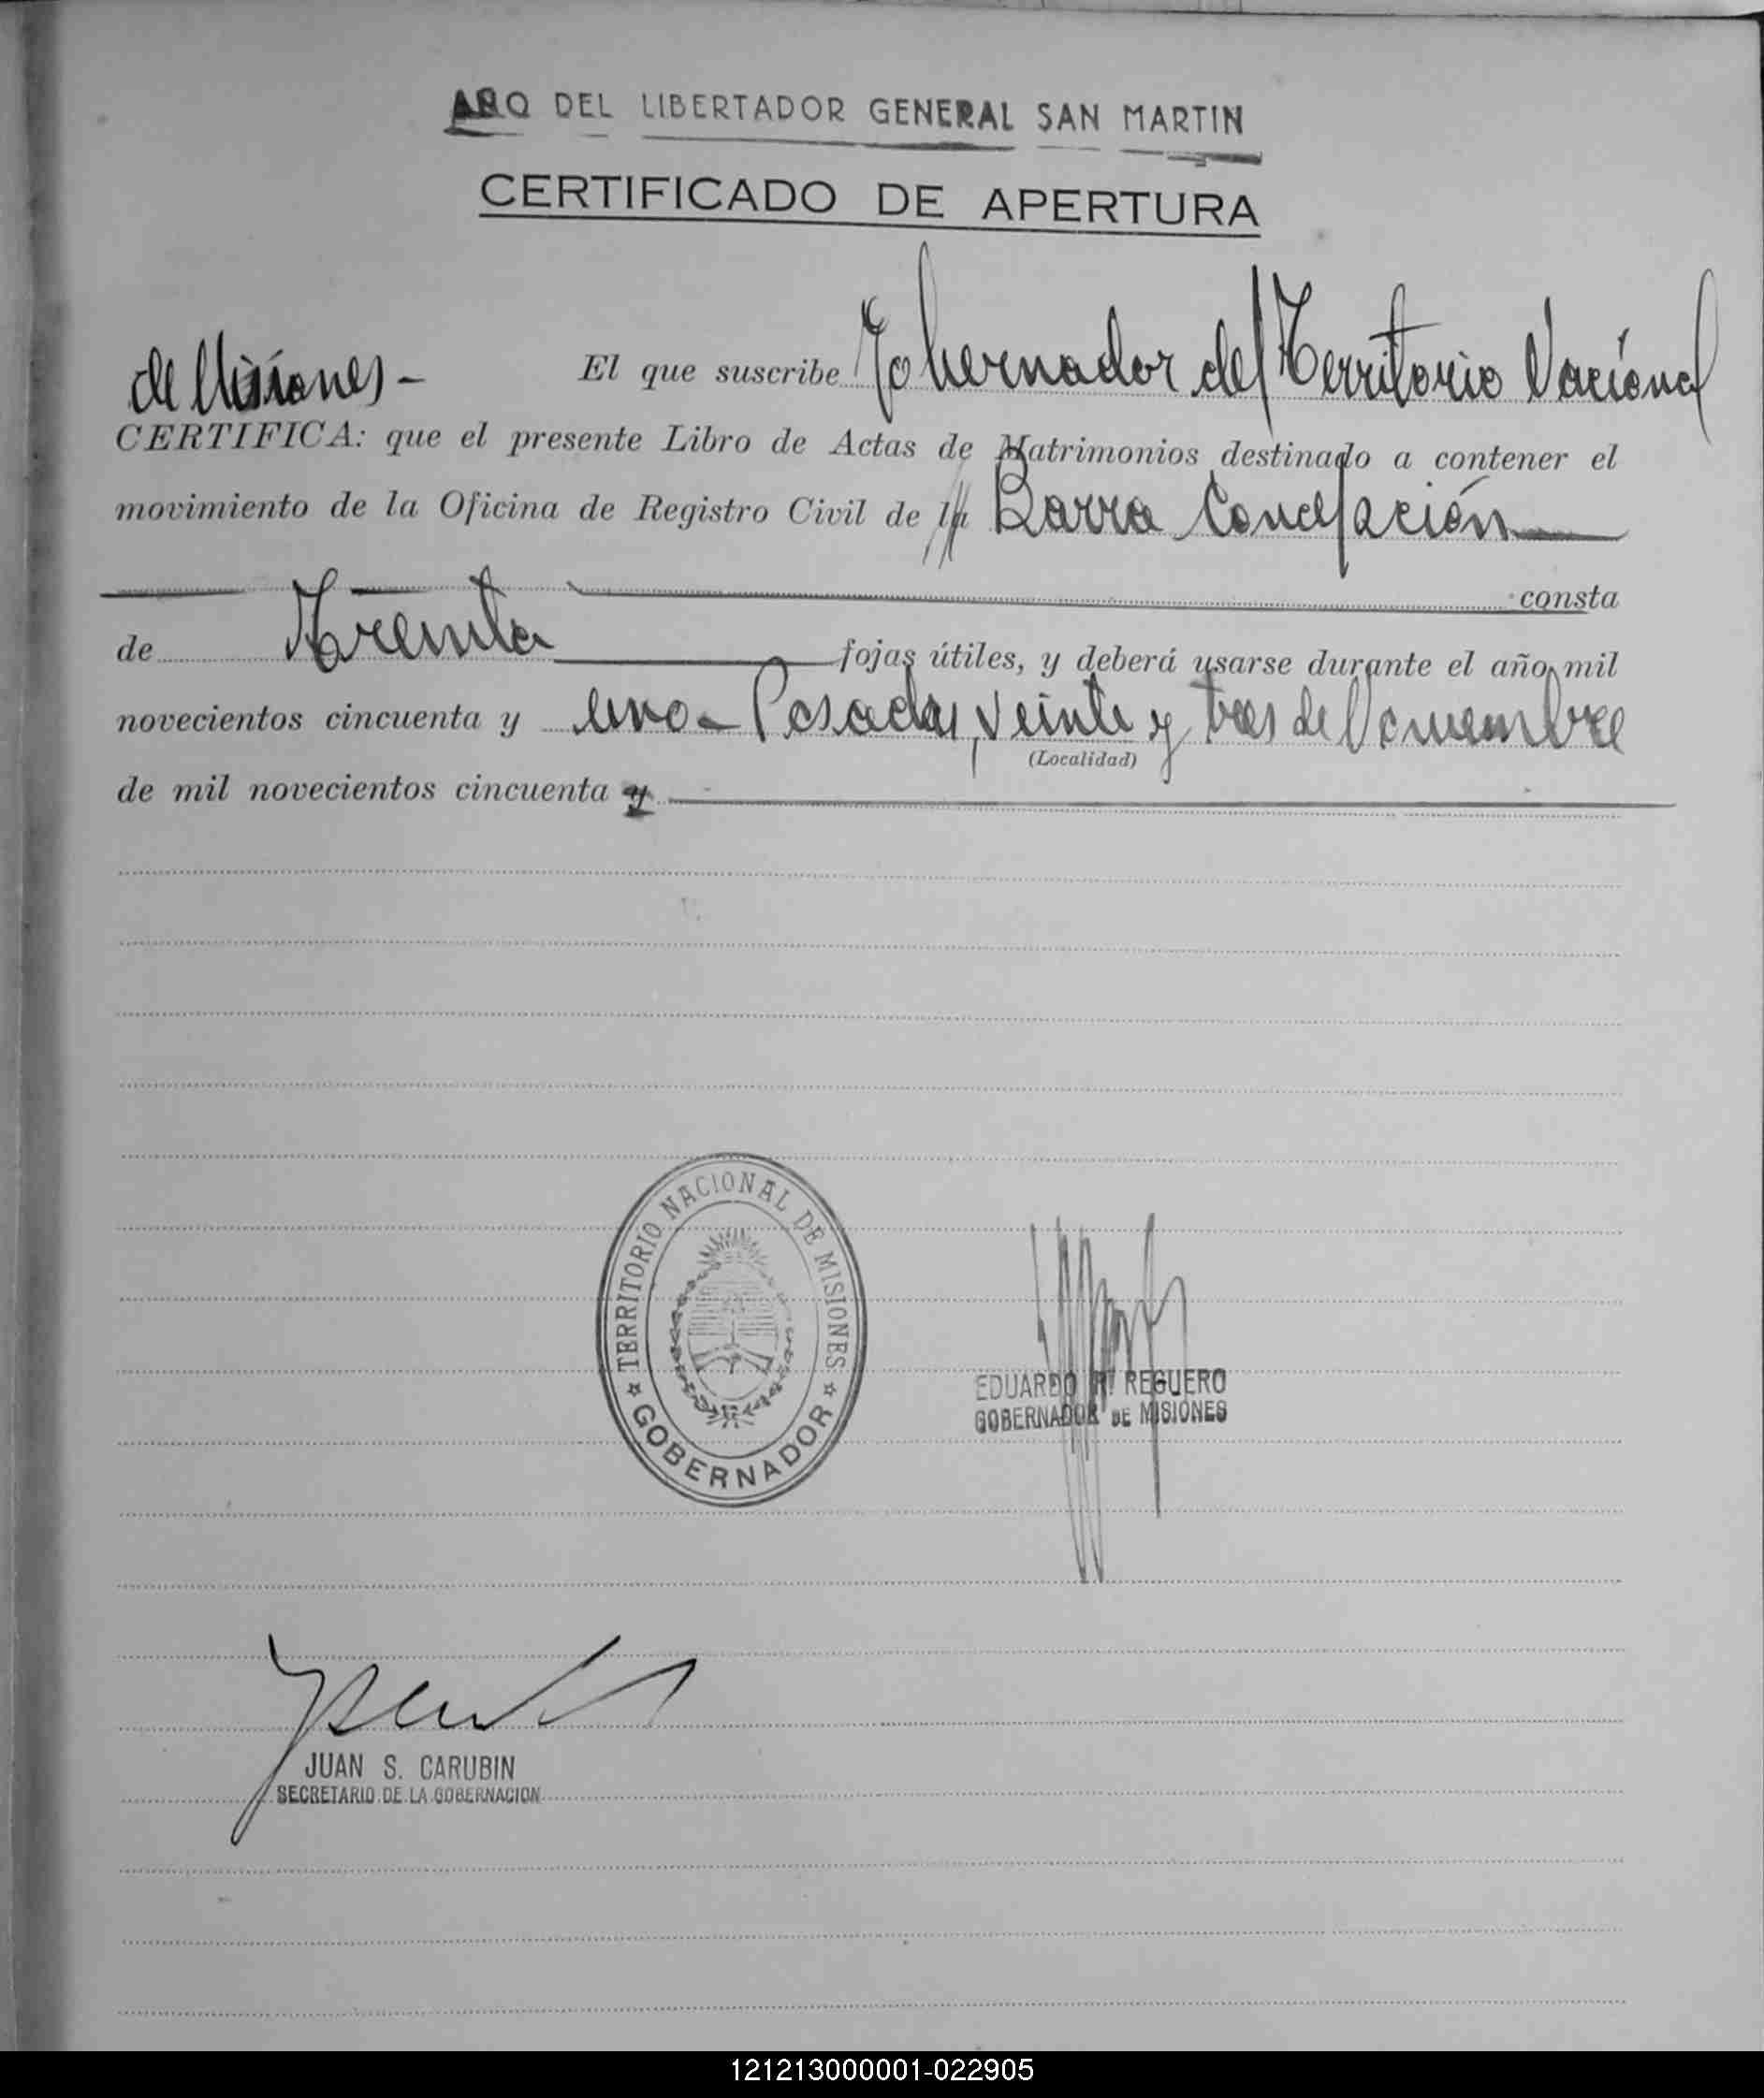 AÑO DEL LIBERTADOR GENERAL SAN MARTIN
CERTIFICADO DE APERTURA
El que suscribe Gobernador del Territorio Nacional
de Misiones -
CERTIFICA: que el presente Libro de Actas de Matrimonios destinado a contener el
movimiento de la Oficina de Registro Civil de la Barra Concepción
consta
de Treinta fojas útiles, y deberá usarse durante el año mil
novecientos cincuenta y uno - Posadas, veinte y tres de Noviembre
(Localidad)
de mil novecientos cincuenta y
TERRITORIO NACIONAL DE MISIONES
GOBERNADOR
EDUARDO REGUERO
GOBERNADOR DE MISIONES
JUAN S. CARUBIN
SECRETARIO DE LA GOBERNACION
121213000001-022905